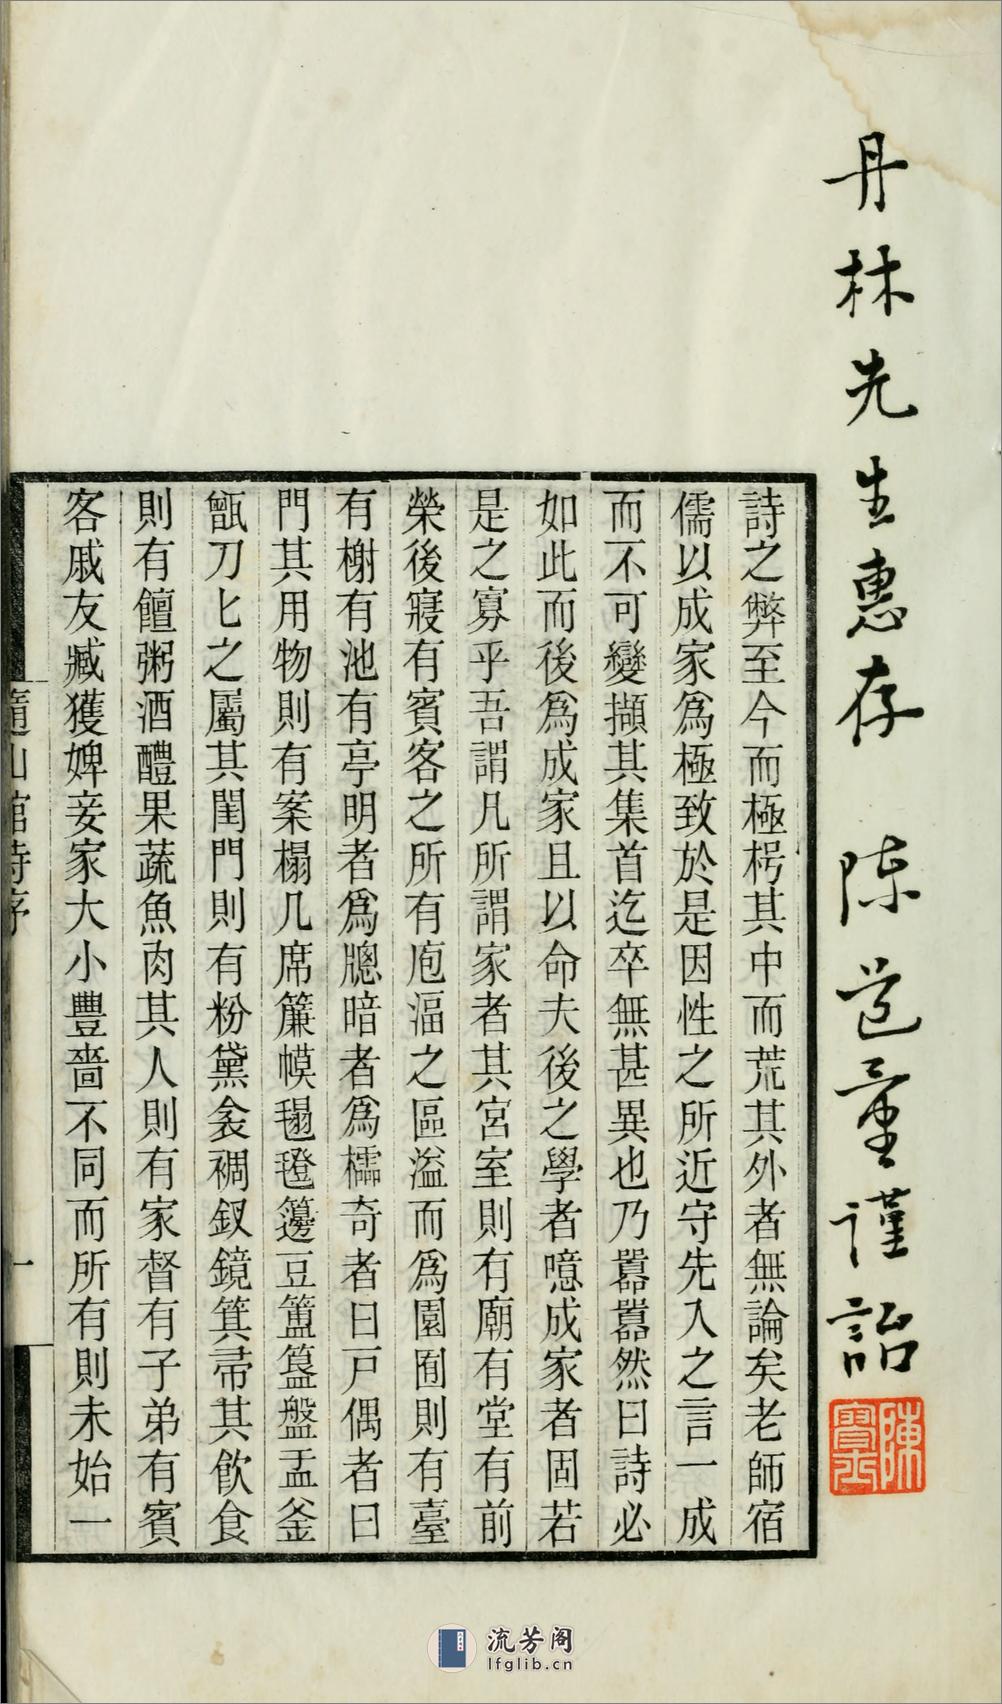 丹林先生惠存　陳蕓量謹詒
詩之弊至今而極枵其中而荒其外者無論矣老師宿
儒以成家爲極致於是因性之所近守先入之言一成
而不可變擷其集首迄卒無甚異也乃囂囂然曰詩必
如此而後爲成家且以命夫後之學者噫成家者固若
是之寡乎吾謂凡所謂家者其宮室則有廟有堂有前
榮後寢有賓客之所有庖湢之區溢而爲園囿則有臺
有榭有池有亭明者爲牕暗者爲櫺奇者曰戸偶者曰
門其用物則有案榻几席簾幙毾㲪籩豆簠簋盤盂釜
甑刀匕之屬其閨門則有粉黛衾裯釵鏡箕帚其飮食
則有饘粥酒醴果蔬魚肉其人則有家督有子弟有賓
客戚友臧獲婢妾家大小豐嗇不同而所有則未始一
隨山館詩序
一
流芳阁
lfglib.cn